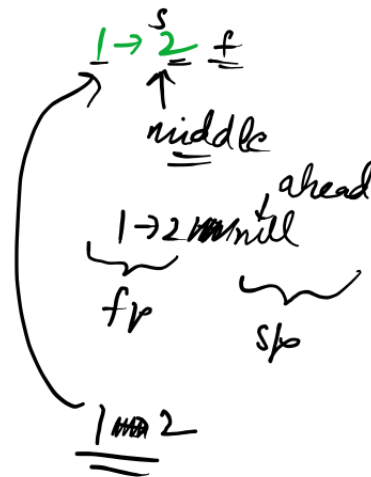 s
1 → 2 f
middle
ahead
1 → 2 null
fp
sp
1 2